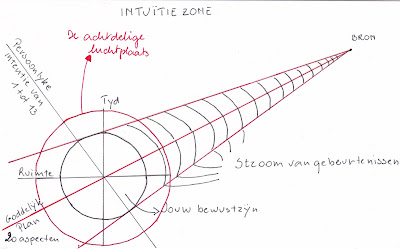 INTUÏTIE ZONE
De achtdelige
luchtplaats
BRON
Persoonlijke
intentie van
1 tot 13
Tyd
Ruimte
Stroom van gebeurtenissen
Goddelijk
Plan
20 aspecten
Jouw bewustzijn